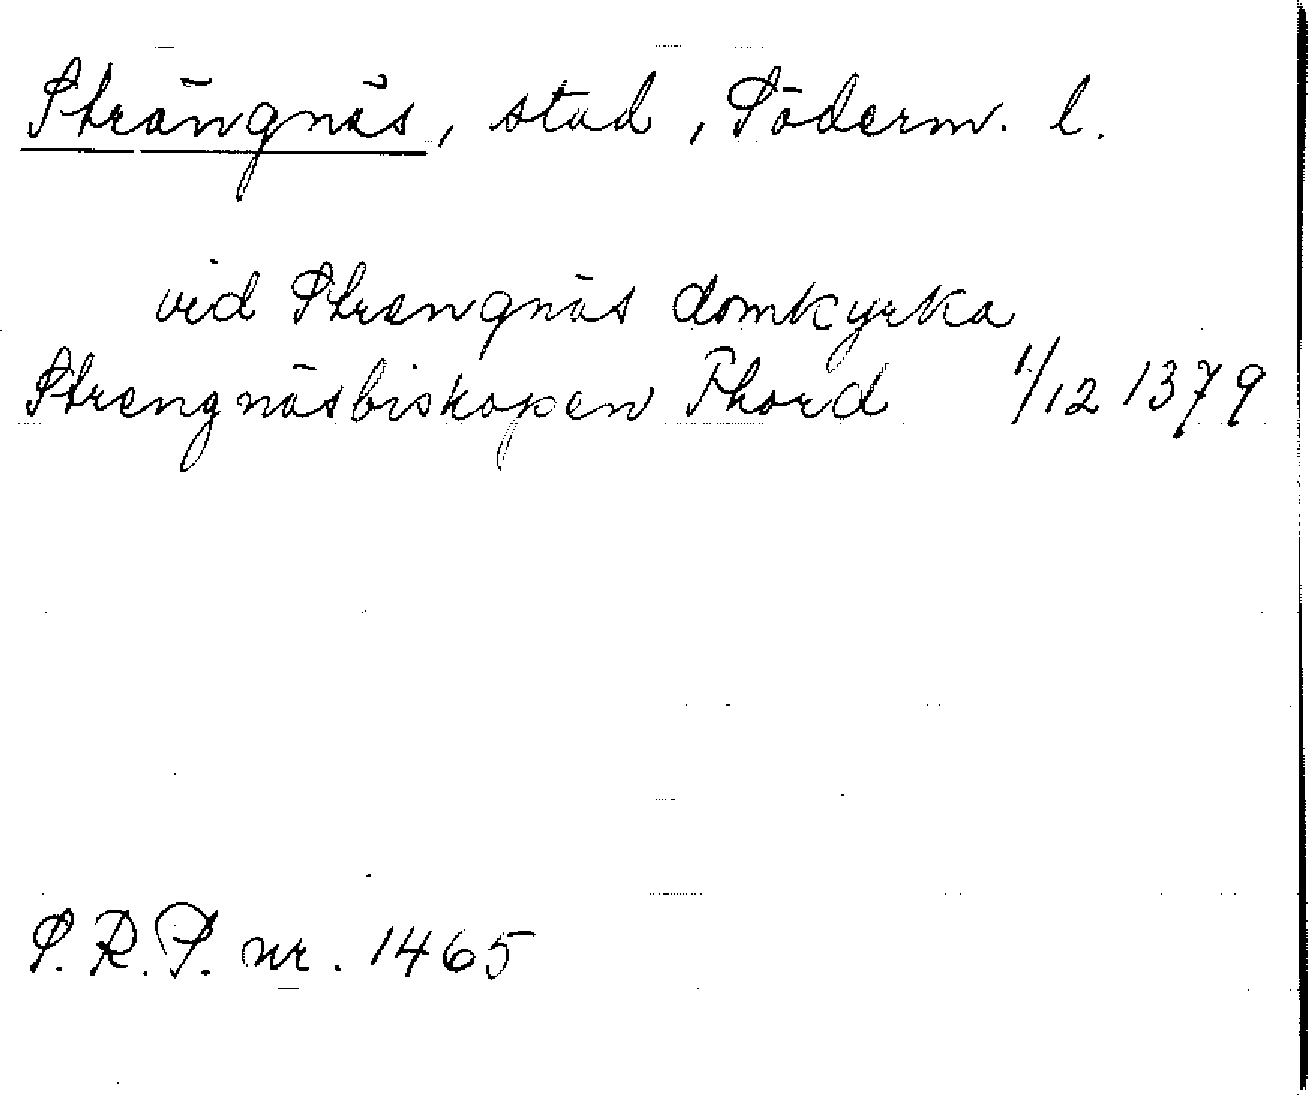 Strängnäs, stad, Söderm. l.
vid Strengnäs domkyrka
Strengnäsbiskopen Thord 1/12 1379
S. R. P. nr. 1465